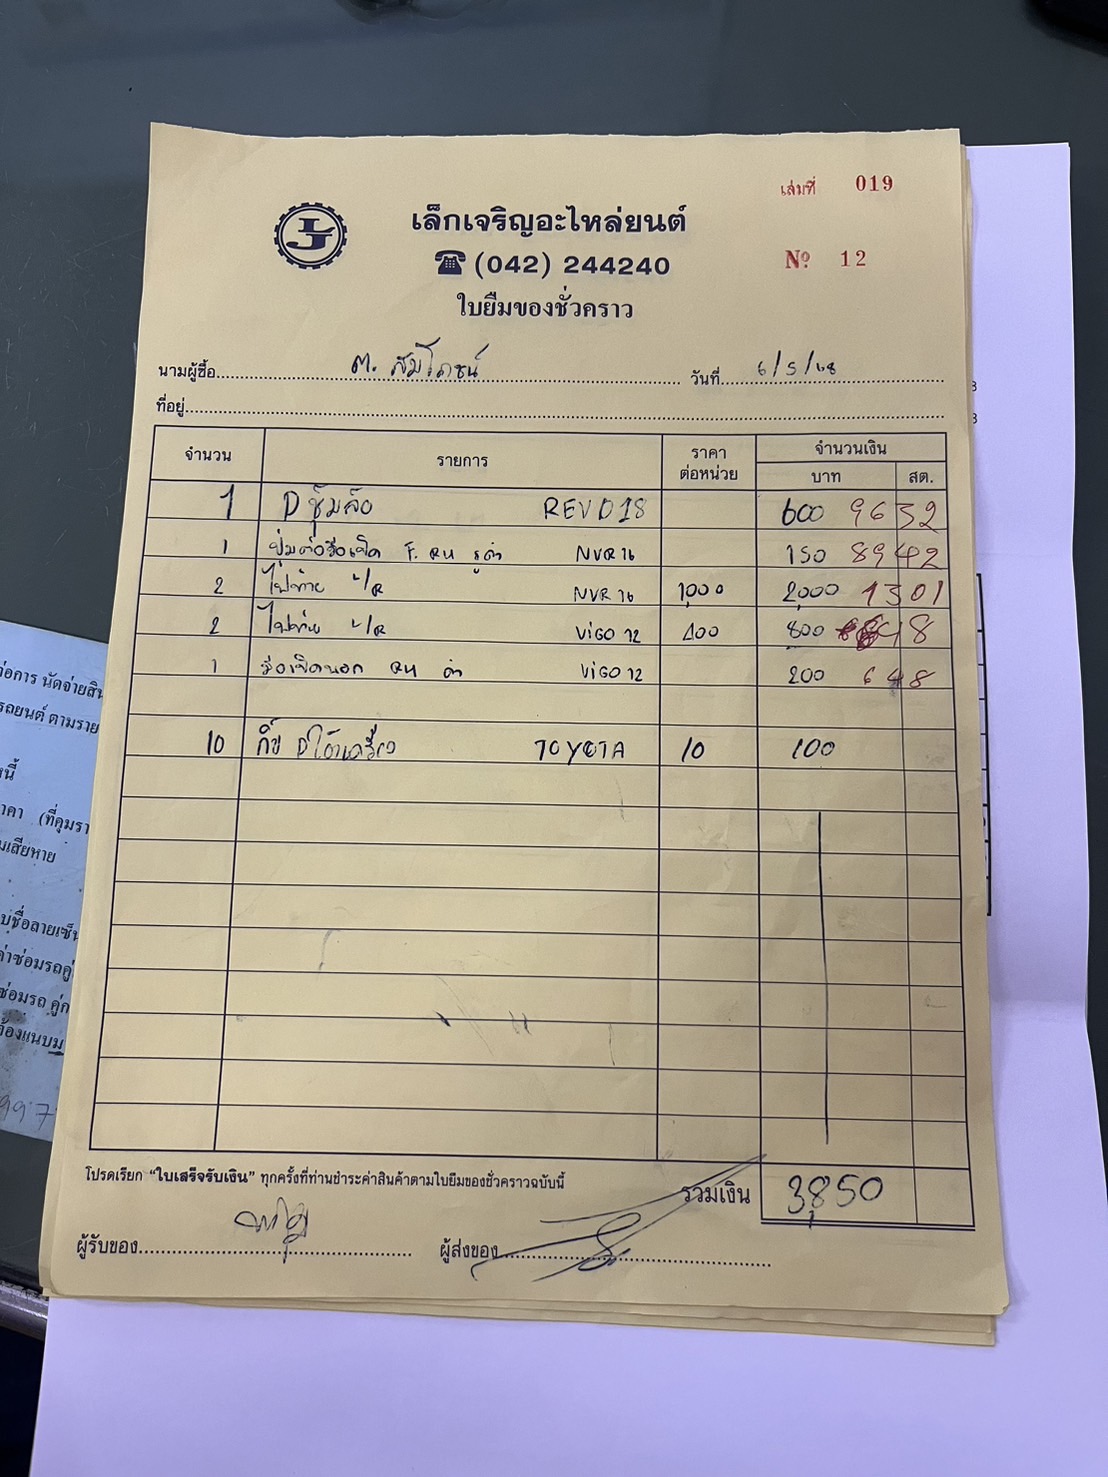 เล่มที่ 019
เล็กเจริญอะไหล่ยนต์
LJ
(042) 244240
Nº 12
ใบยืมของชั่วคราว
นามผู้ซื้อ ต. สมโภชน์ วันที่ 6/5/68
ที่อยู่
จำนวน รายการ ราคาต่อหน่วย จำนวนเงิน
บาท สต.
1 D ซุ้มล้อ REVO18 600 9632
1 F. RH NVR 16 150 8942
2 ไฟท้าย L/R NVR 16 1000 2,000 1301
2 ไฟท้าย L/R VIGO 12 400 800 48
1 มือเปิดนอก RH ดำ VIGO 12 200 648
10 กิ๊บ TOYOTA 10 100
โปรดเรียก "ใบเสร็จรับเงิน" ทุกครั้งที่ท่านชำระค่าสินค้าตามใบยืมของชั่วคราวฉบับนี้
รวมเงิน 3,850
ผู้รับของ ผู้ส่งของ
ต่อการ นัดจ่ายสิน
รถยนต์ ตามราย
นี้
าคา (ที่คุมรา
มเสียหาย
บชื่อลายเซ็น
ค่าซ่อมรถคู่
ซ่อมรถ คู่ก
ต้องแนบม
997